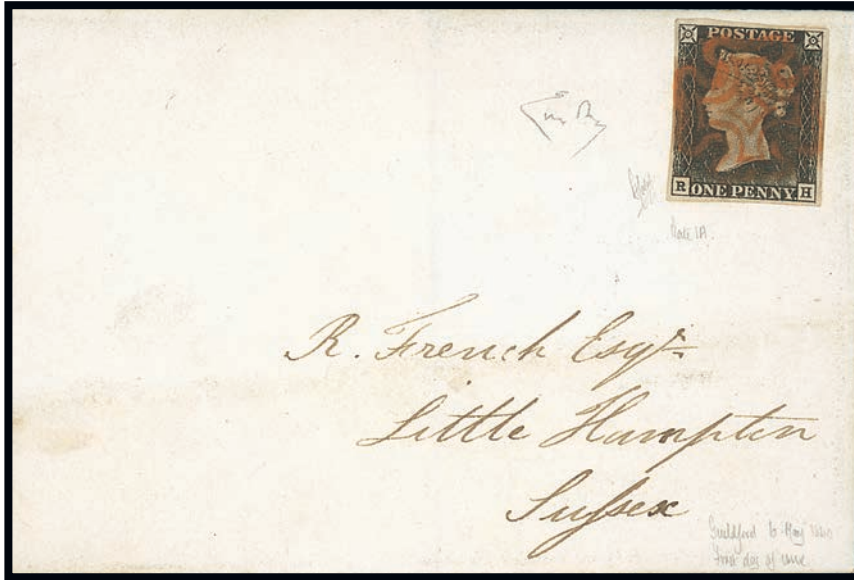 POSTAGE
R ONE PENNY H
Plate 1A.
R. French Esqr
Little Hampton
Sussex
Guildford 6 May 1840
First day of issue